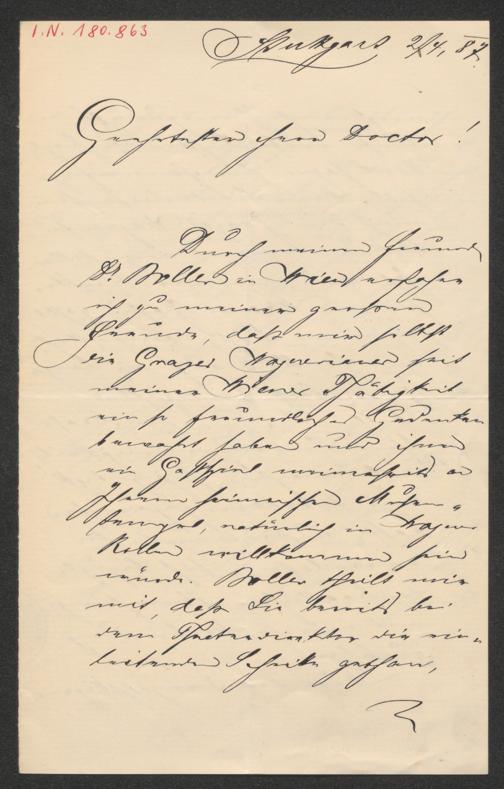 I.N. 180.863
Stuttgart 2/4, 87.
Geehrtester Herr Doctor!
Durch meinen Freund
Dr. Boller in Wien erfahre
ich zu meiner großen
Freude, daß mir selbst
die Grazer Wagnerianer seit
meiner Wiener Thätigkeit
ein so freundliches Gedenken
bewahrt haben und ihnen
ein Gastspiel meinerseits an
Ihrem heimischen Musen-
tempel, natürlich in Wagner
Rollen willkommen sein
würde. Boller theilt mir
mit, daß Sie bereits bei
dem Theaterdirektor die ein-
leitenden Schritte gethan,